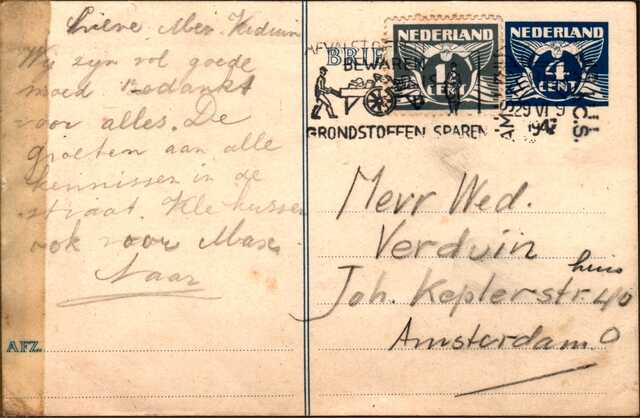 Lieve Mev. Verduin
Wij zyn vol goede
moed Bedankt
voor alles. De
groeten aan alle
kennissen in de
straat. Vele kussen
ook voor Max.
Saar
AFZ.
BRIEF
NEDERLAND
1½
CENT
NEDERLAND
4
CENT
AFVALSTOFFEN
BEWAREN
GRONDSTOFFEN SPAREN
AMSTERDAM
29 VI 9
1942
C.S.
Mevr Wed.
Verduin
huis
Joh. Keplerstr. 40
Amsterdam O